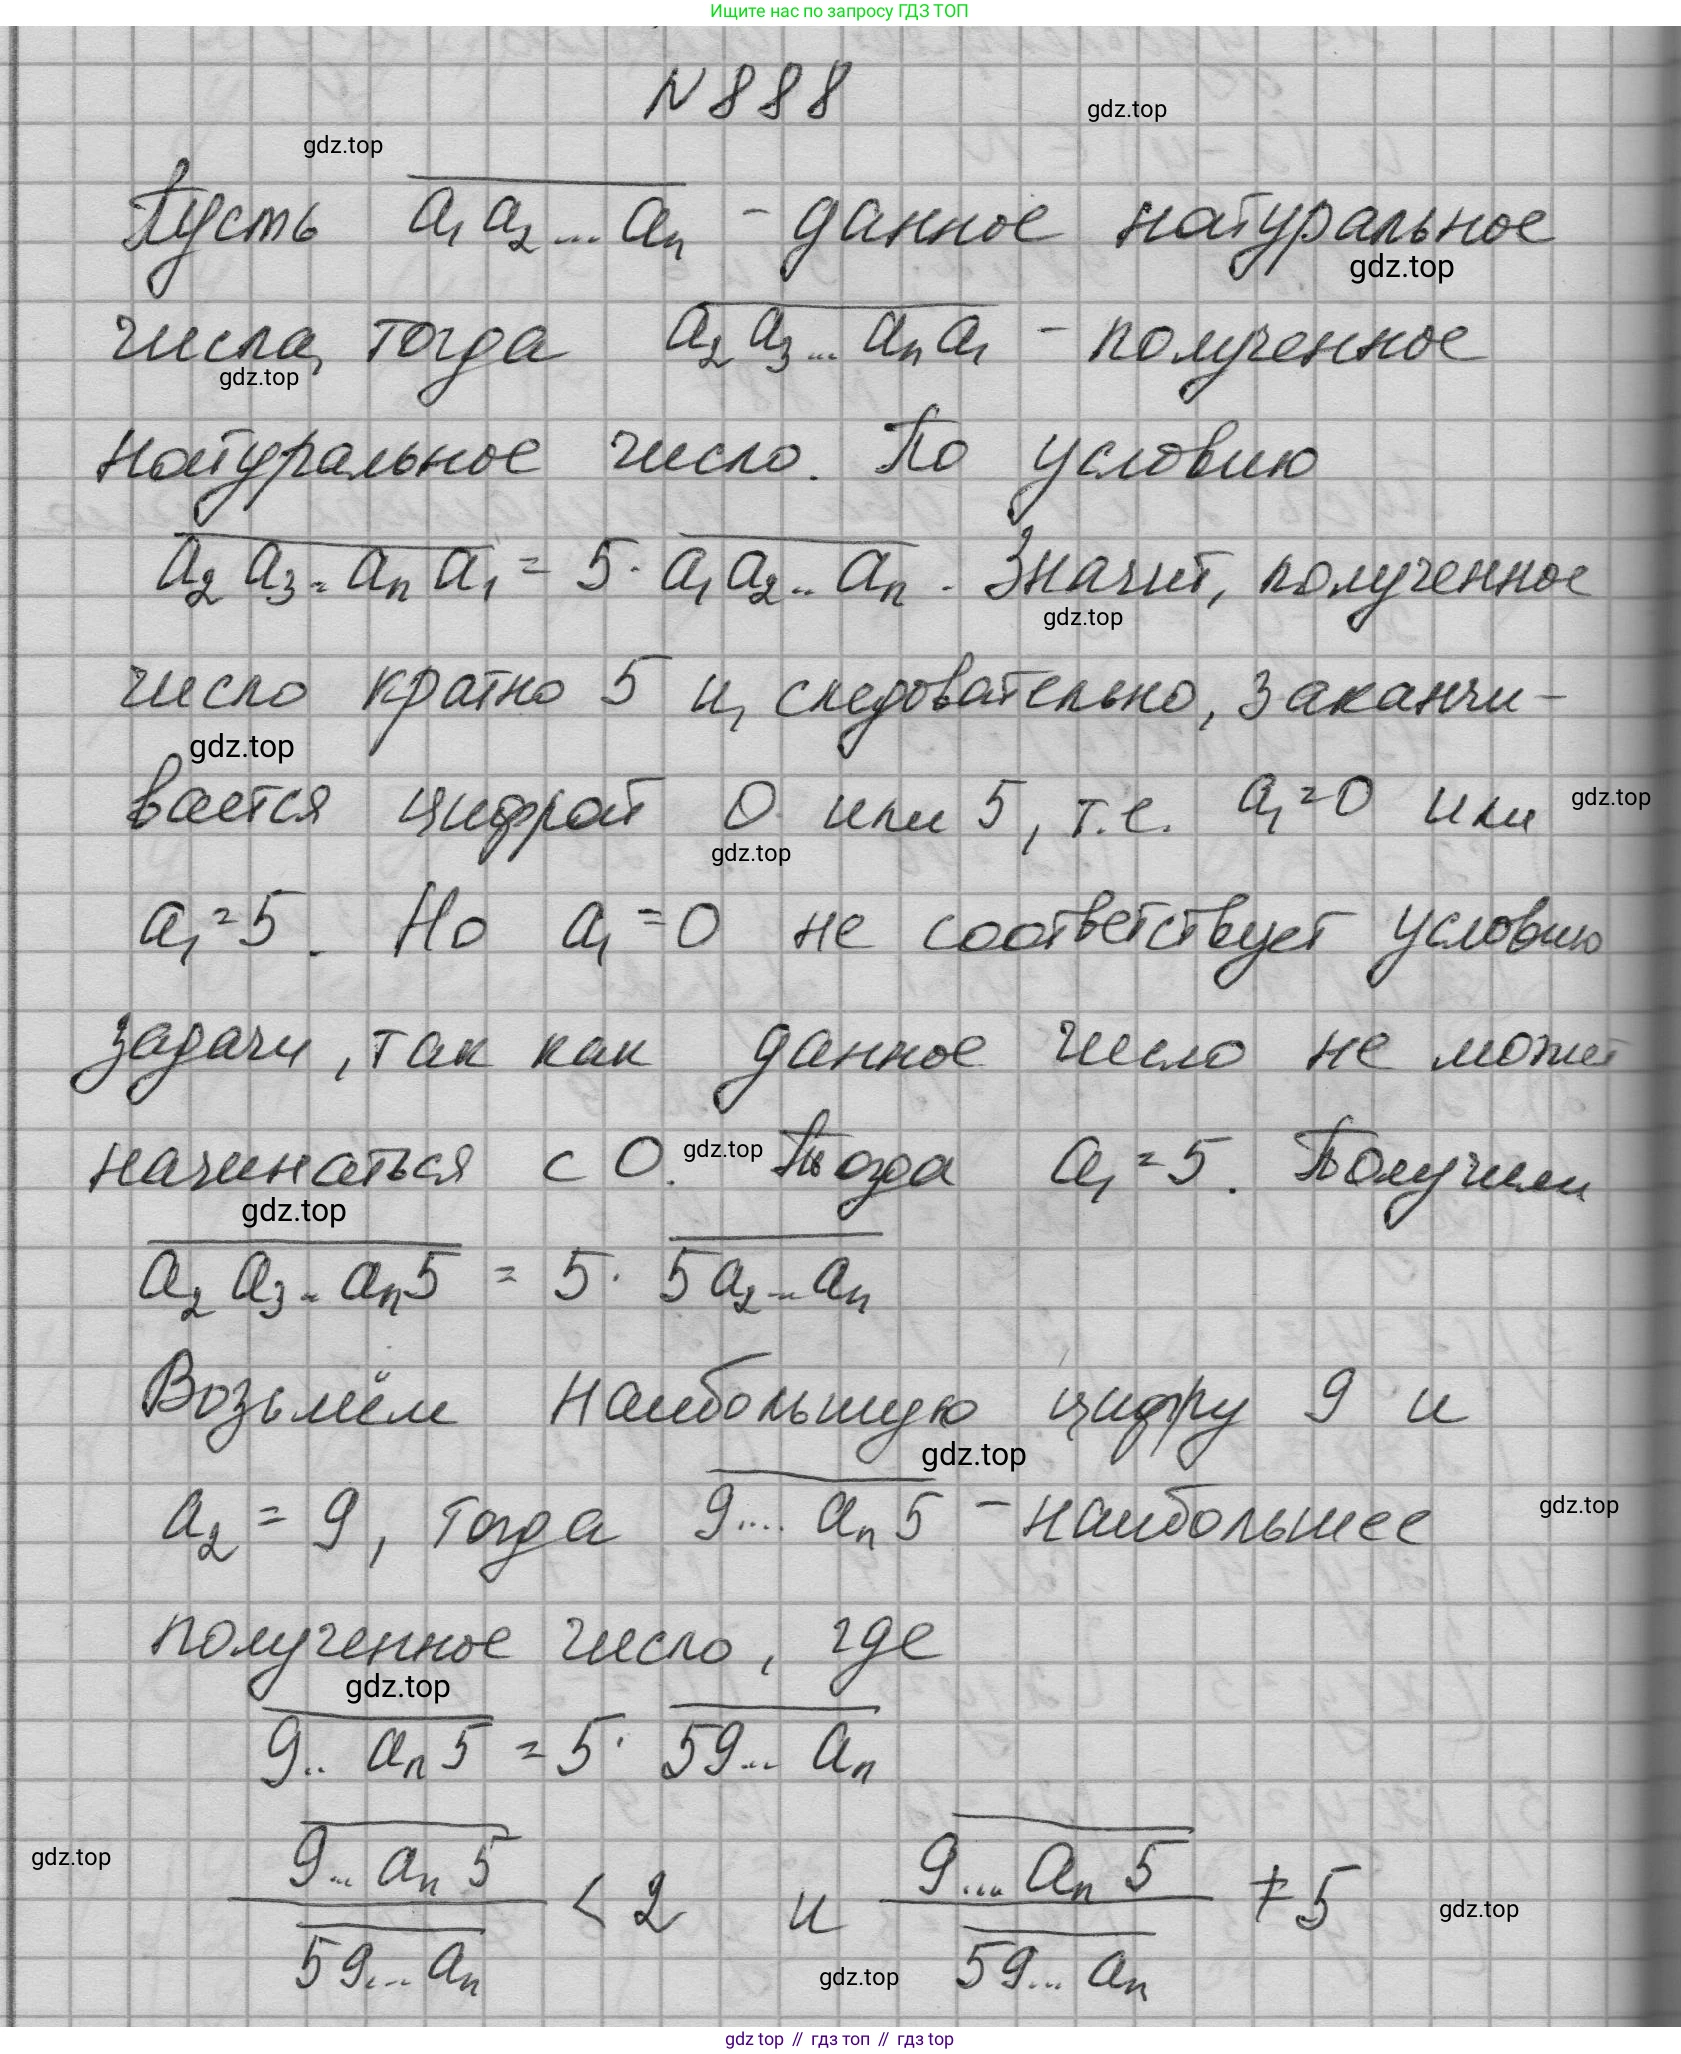 Ищите нас по запросу ГДЗ ТОП
N 888
gdz.top
gdz.top
Пусть a₁a₂...aₙ - данное натуральное
gdz.top
числа, тогда a₂a₃...aₙa₁ - полученное
gdz.top
натуральное число. По условию
a₂a₃...aₙa₁ = 5·a₁a₂...aₙ. Значит, полученное
gdz.top
число кратно 5 и, следовательно, заканчи-
gdz.top
вается цифрой 0 или 5, т.е. a₁=0 или
gdz.top
gdz.top
a₁=5. Но a₁=0 не соответствует условию
задачи, так как данное число не может
начинаться с 0. Тогда a₁=5. Получим
gdz.top
gdz.top
a₂a₃...aₙ5 = 5·5a₂...aₙ
Возьмём наибольшую цифру 9 и
gdz.top
a₂ = 9, тогда 9....aₙ5 - наибольшее
gdz.top
полученное число, где
gdz.top
9..aₙ5 = 5·59...aₙ
9...aₙ5 / 59...aₙ < 2 и 9...aₙ5 / 59...aₙ ≠ 5
gdz.top
gdz.top
gdz.top
gdz top // гдз топ // gdz top